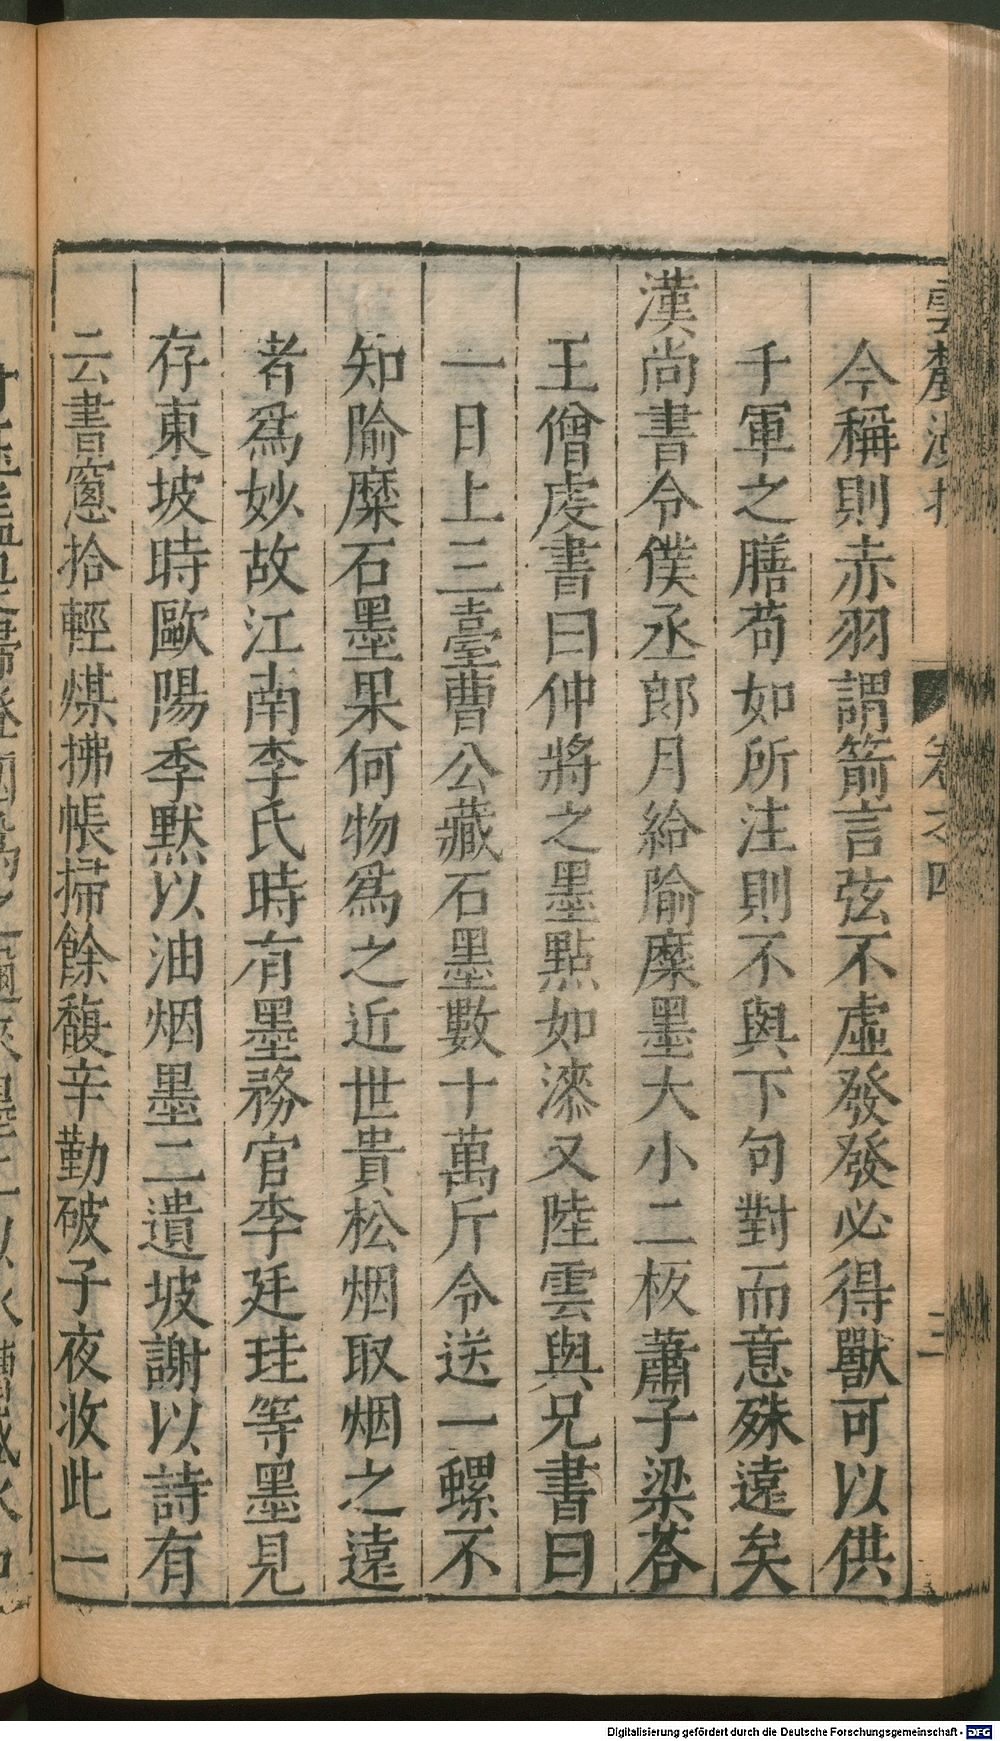 雲麓漫抄
卷之四
二
今稱則赤羽謂箭言弦不虛發發必得獸可以供
千軍之膳苟如所注則不與下句對而意殊遠矣
漢尚書令僕丞郎月給隃糜墨大小二板蕭子梁荅
王僧虔書曰仲將之墨點如漆又陸雲與兄書曰
一日上三臺曹公藏石墨數十萬斤令送一螺不
知隃糜石墨果何物爲之近世貴松烟取烟之遠
者爲妙故江南李氏時有墨務官李廷珪等墨見
存東坡時歐陽季默以油烟墨二遺坡謝以詩有
云書窻拾輕煤拂帳掃餘馥辛勤破千夜收此一
Digitalisierung gefördert durch die Deutsche Forschungsgemeinschaft - DFG